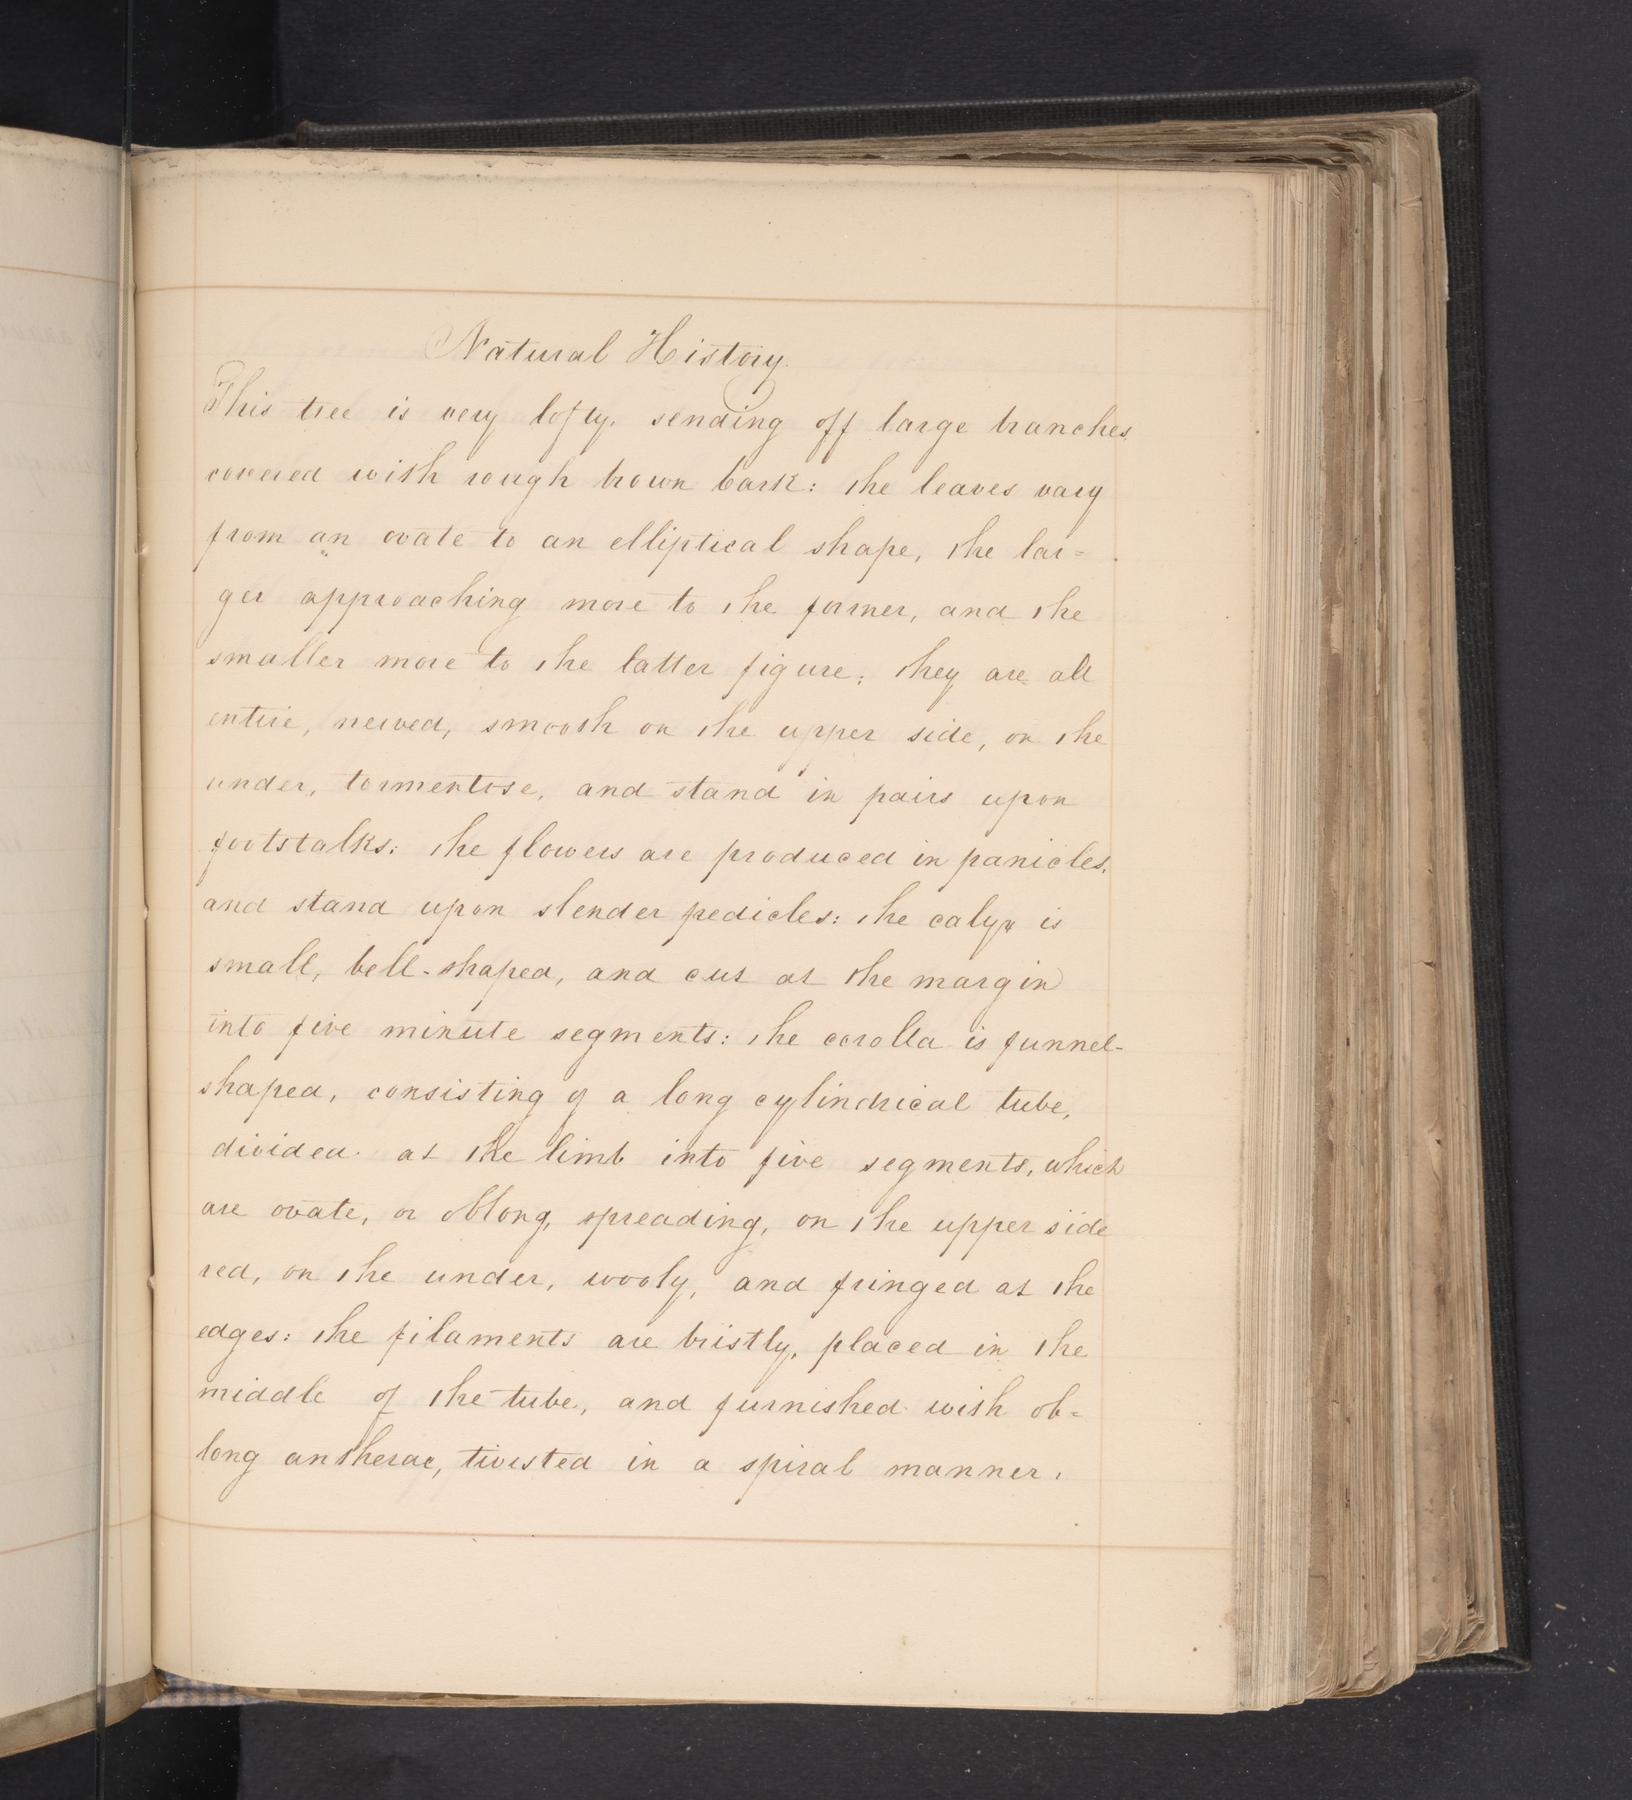 Natural History.
This tree is very lofty, sending off large branches
covered with rough brown bark: the leaves vary
from an ovate to an elliptical shape, the lar=
ger approaching more to the former, and the
smaller more to the latter figure; they are all
entire, nerved, smooth on the upper side, on the
under, tormentose, and stand in pairs upon
footstalks: the flowers are produced in panicles,
and stand upon slender pedicles: the calyx is
small, bell-shaped, and cut at the margin
into five minute segments: the corolla is funnel-
shaped, consisting of a long cylindrical tube,
divided at the limb into five segments, which
are ovate, or oblong, spreading, on the upper side
red, on the under, wooly, and fringed at the
edges: the filaments are bristly, placed in the
middle of the tube, and furnished with ob=
long antherae, twisted in a spiral manner.